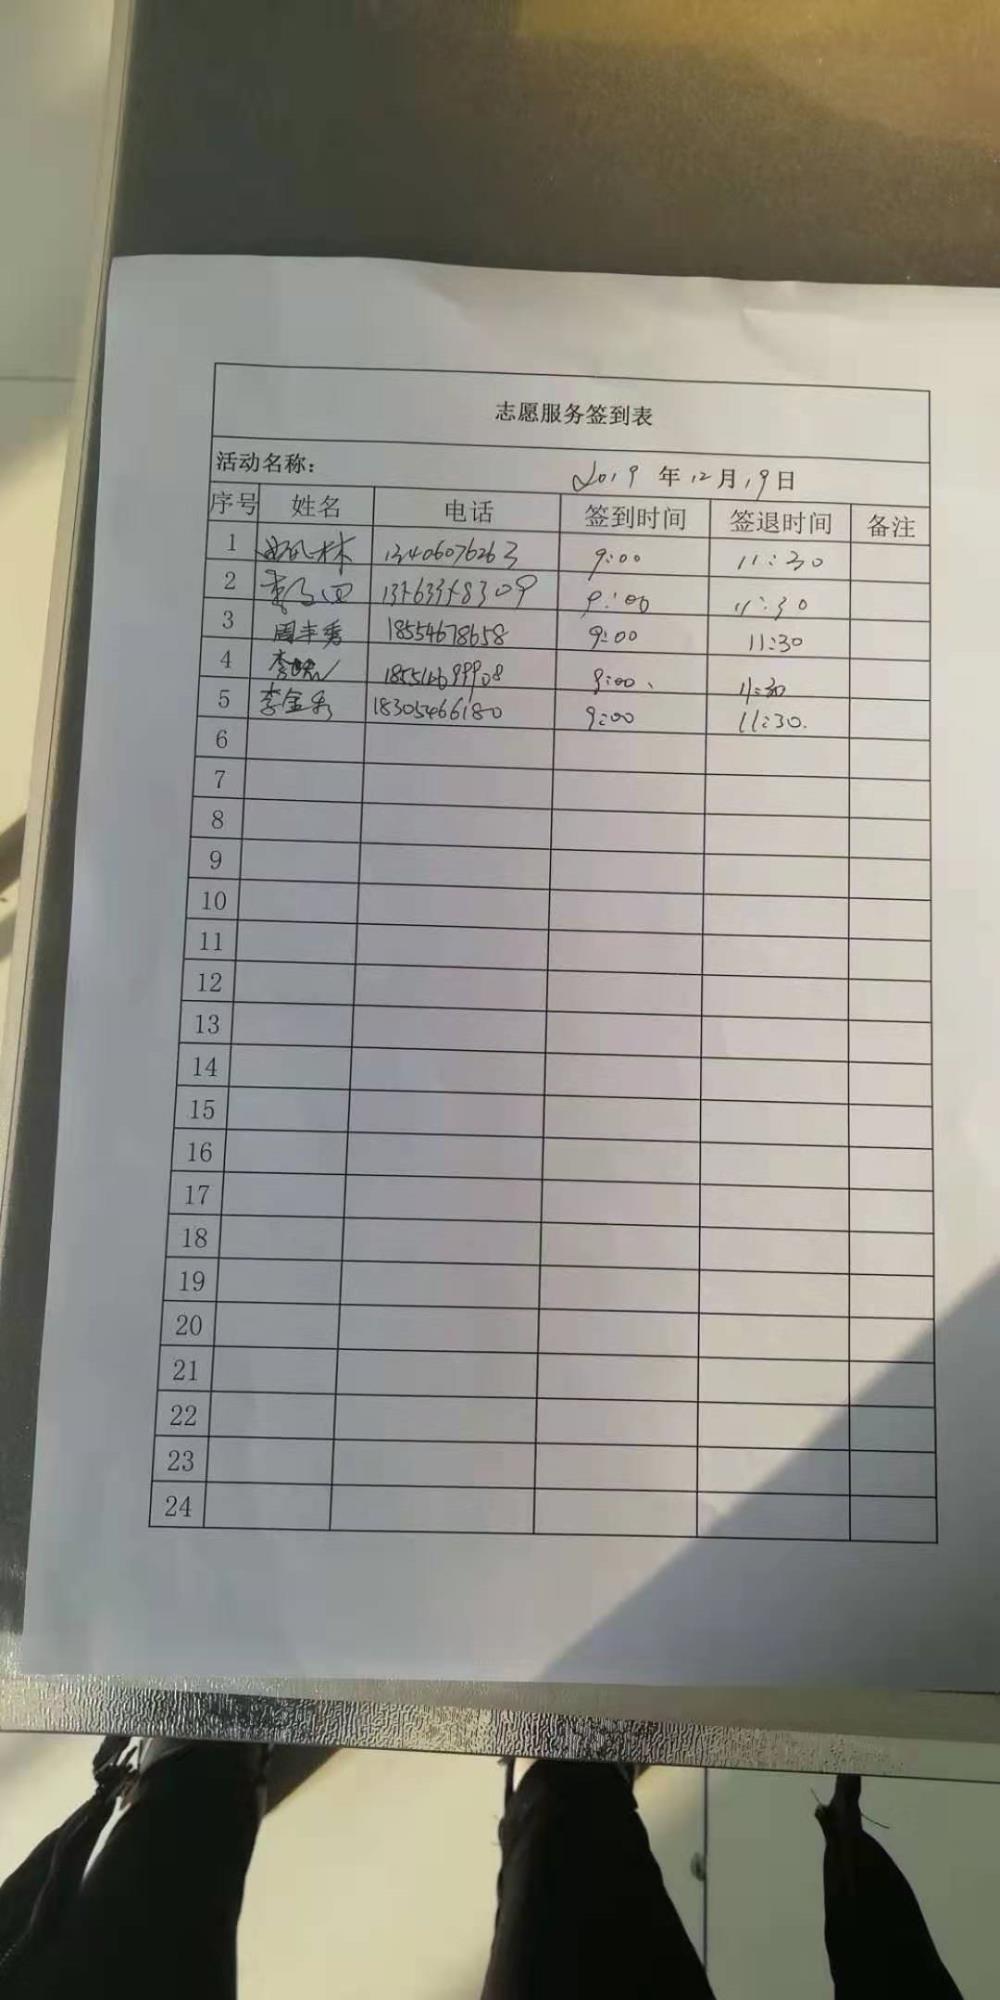 志愿服务签到表
活动名称: 2019 年 12 月 19 日
序号 姓名 电话 签到时间 签退时间 备注
1 13406076263 9:00 11:30
2 9:00 11:30
3 周丰秀 18554678658 9:00 11:30
4 李 9:00、 11:30
5 李金秀 18305466180 9:00 11:30.
6
7
8
9
10
11
12
13
14
15
16
17
18
19
20
21
22
23
24